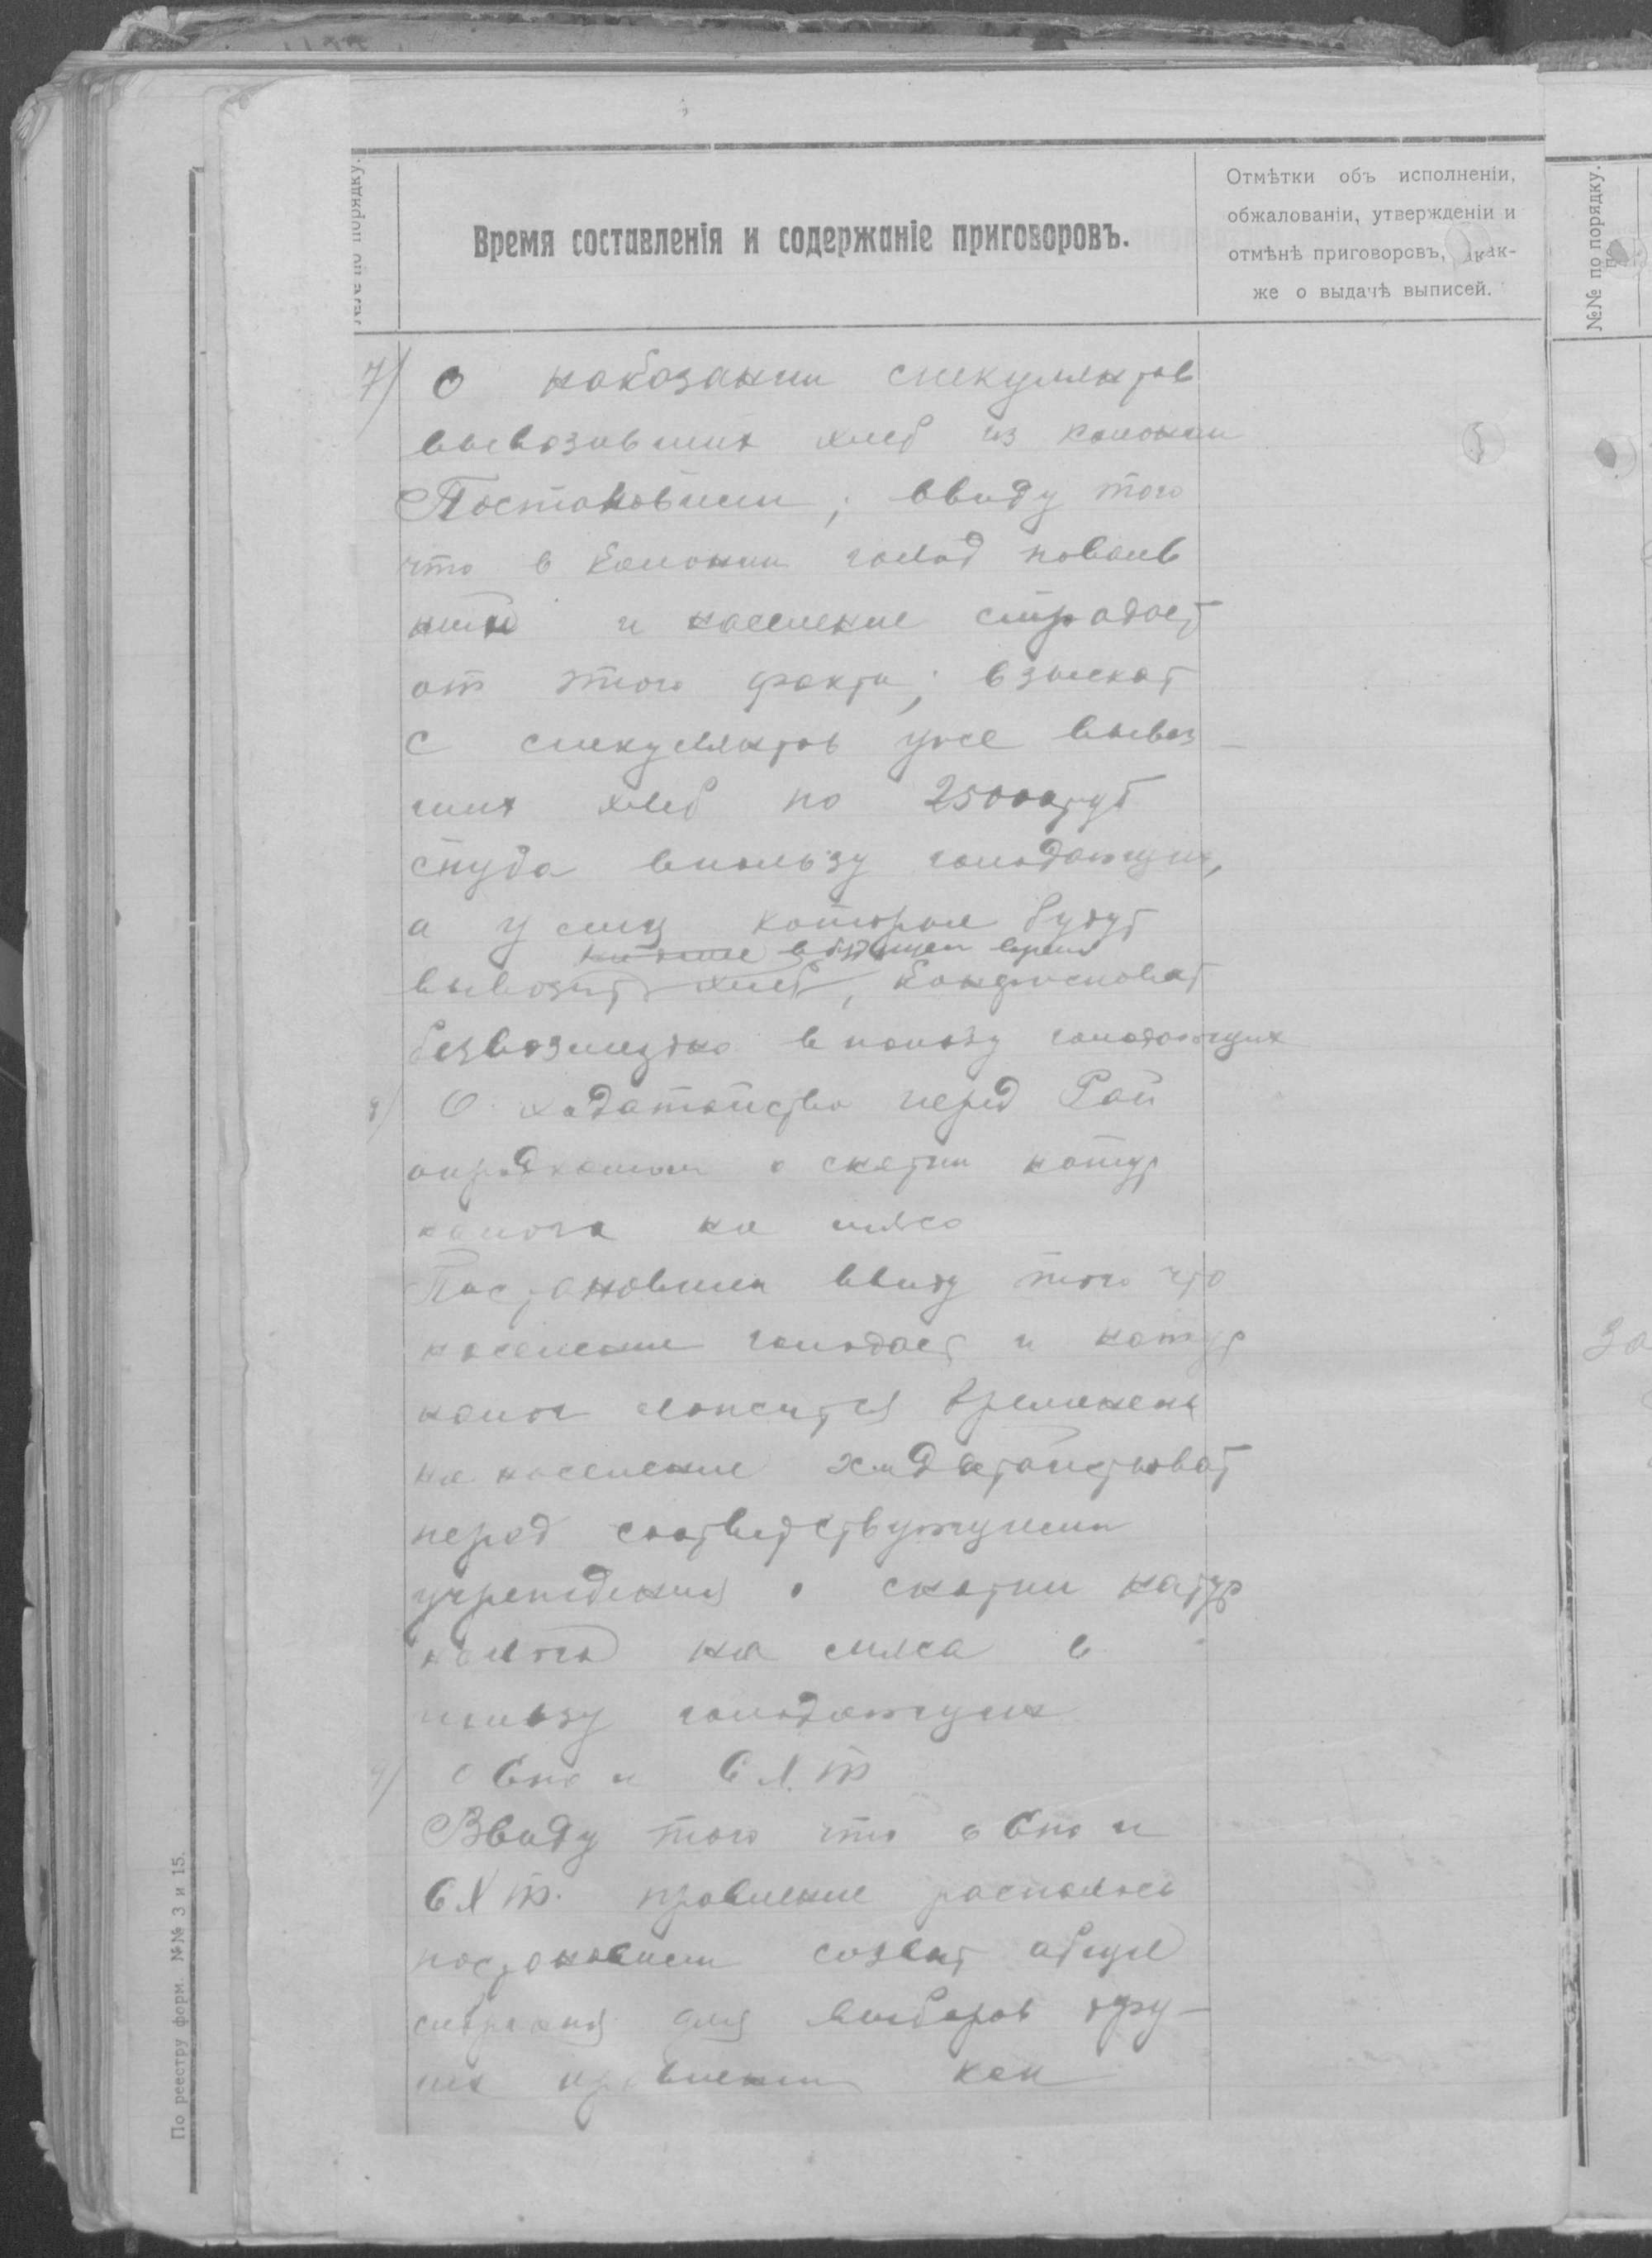 №№ по порядку.
Время составленія и содержаніе приговоровъ.
Отмѣтки объ исполненіи,
обжалованіи, утвержденіи и
отмѣнѣ приговоровъ, а так-
же о выдачѣ выписей.
№№ по порядку.
7) О наказании спекулянтов
вывозивших хлеб из колонии
Постановили; ввиду того
что в колонии голод
и население страдает
от этого факта; взыскат
с спекулянтов уже вывез-
ших хлеб по 25000 руб
спуда впользу голодающих,
а у лиц которые будут
в будущем время
вывозит хлеб, конфисковат
безвозмездно впользу голодающих
8) О ходатайство перед Рай
о снятии натур
налога на мясо
Постановили ввиду того что
население голодает и натур
налог ложится
на население ходатайствоват
перед соотведствующими
учреждения о снятии натур
налога на мяса в
пользу голодающих
9) О Епо и С.Х.Т
Ввиду того что в Епо и
СХТ. правление распалось
постановили созват общее
собрания для выборов дру-
гих правлении как
За
По реестру форм. №№ 3 и 15.